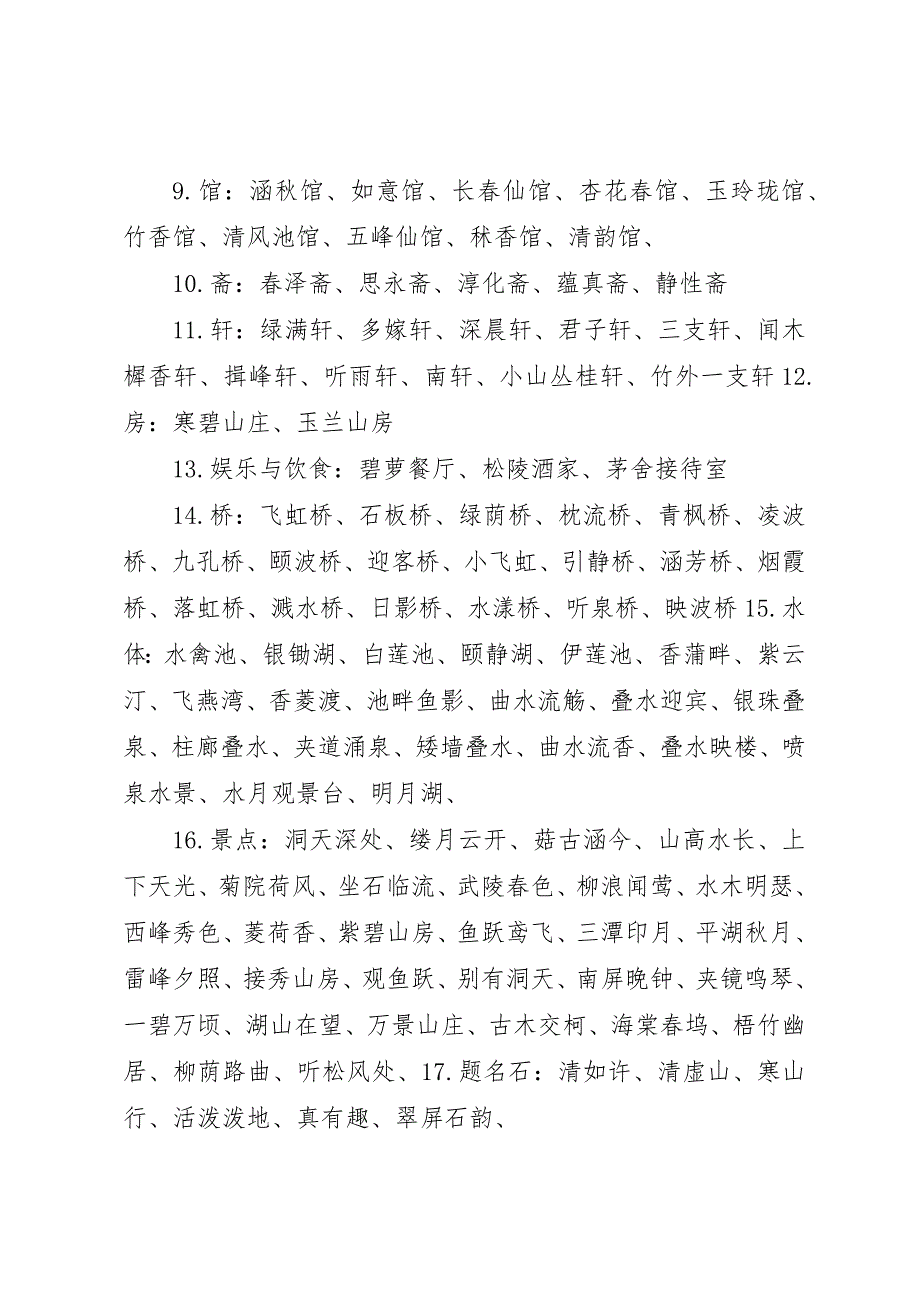 9.馆：涵秋馆、如意馆、长春仙馆、杏花春馆、玉玲珑馆、
竹香馆、清风池馆、五峰仙馆、秫香馆、清韵馆、
10.斋：春泽斋、思永斋、淳化斋、蕴真斋、静性斋
11.轩：绿满轩、多嫁轩、深晨轩、君子轩、三支轩、闻木
樨香轩、揖峰轩、听雨轩、南轩、小山丛桂轩、竹外一支轩 12.
房：寒碧山庄、玉兰山房
13.娱乐与饮食：碧萝餐厅、松陵酒家、茅舍接待室
14.桥：飞虹桥、石板桥、绿荫桥、枕流桥、青枫桥、凌波
桥、九孔桥、颐波桥、迎客桥、小飞虹、引静桥、涵芳桥、烟霞
桥、落虹桥、溅水桥、日影桥、水漾桥、听泉桥、映波桥 15.水
体：水禽池、银锄湖、白莲池、颐静湖、伊莲池、香蒲畔、紫云
汀、飞燕湾、香菱渡、池畔鱼影、曲水流觞、叠水迎宾、银珠叠
泉、柱廊叠水、夹道涌泉、矮墙叠水、曲水流香、叠水映楼、喷
泉水景、水月观景台、明月湖、
16.景点：洞天深处、缕月云开、菇古涵今、山高水长、上
下天光、菊院荷风、坐石临流、武陵春色、柳浪闻莺、水木明瑟、
西峰秀色、菱荷香、紫碧山房、鱼跃鸢飞、三潭印月、平湖秋月、
雷峰夕照、接秀山房、观鱼跃、别有洞天、南屏晚钟、夹镜鸣琴、
一碧万顷、湖山在望、万景山庄、古木交柯、海棠春坞、梧竹幽
居、柳荫路曲、听松风处、17.题名石：清如许、清虚山、寒山
行、活泼泼地、真有趣、翠屏石韵、